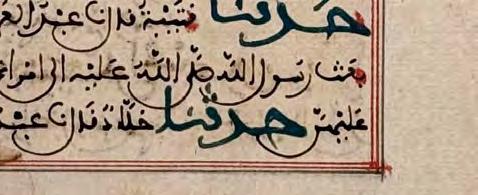 حدثنا قتيبة قال عبد
رسول الله صلى الله عليه الى
عليهن حدثنا خلاد قال